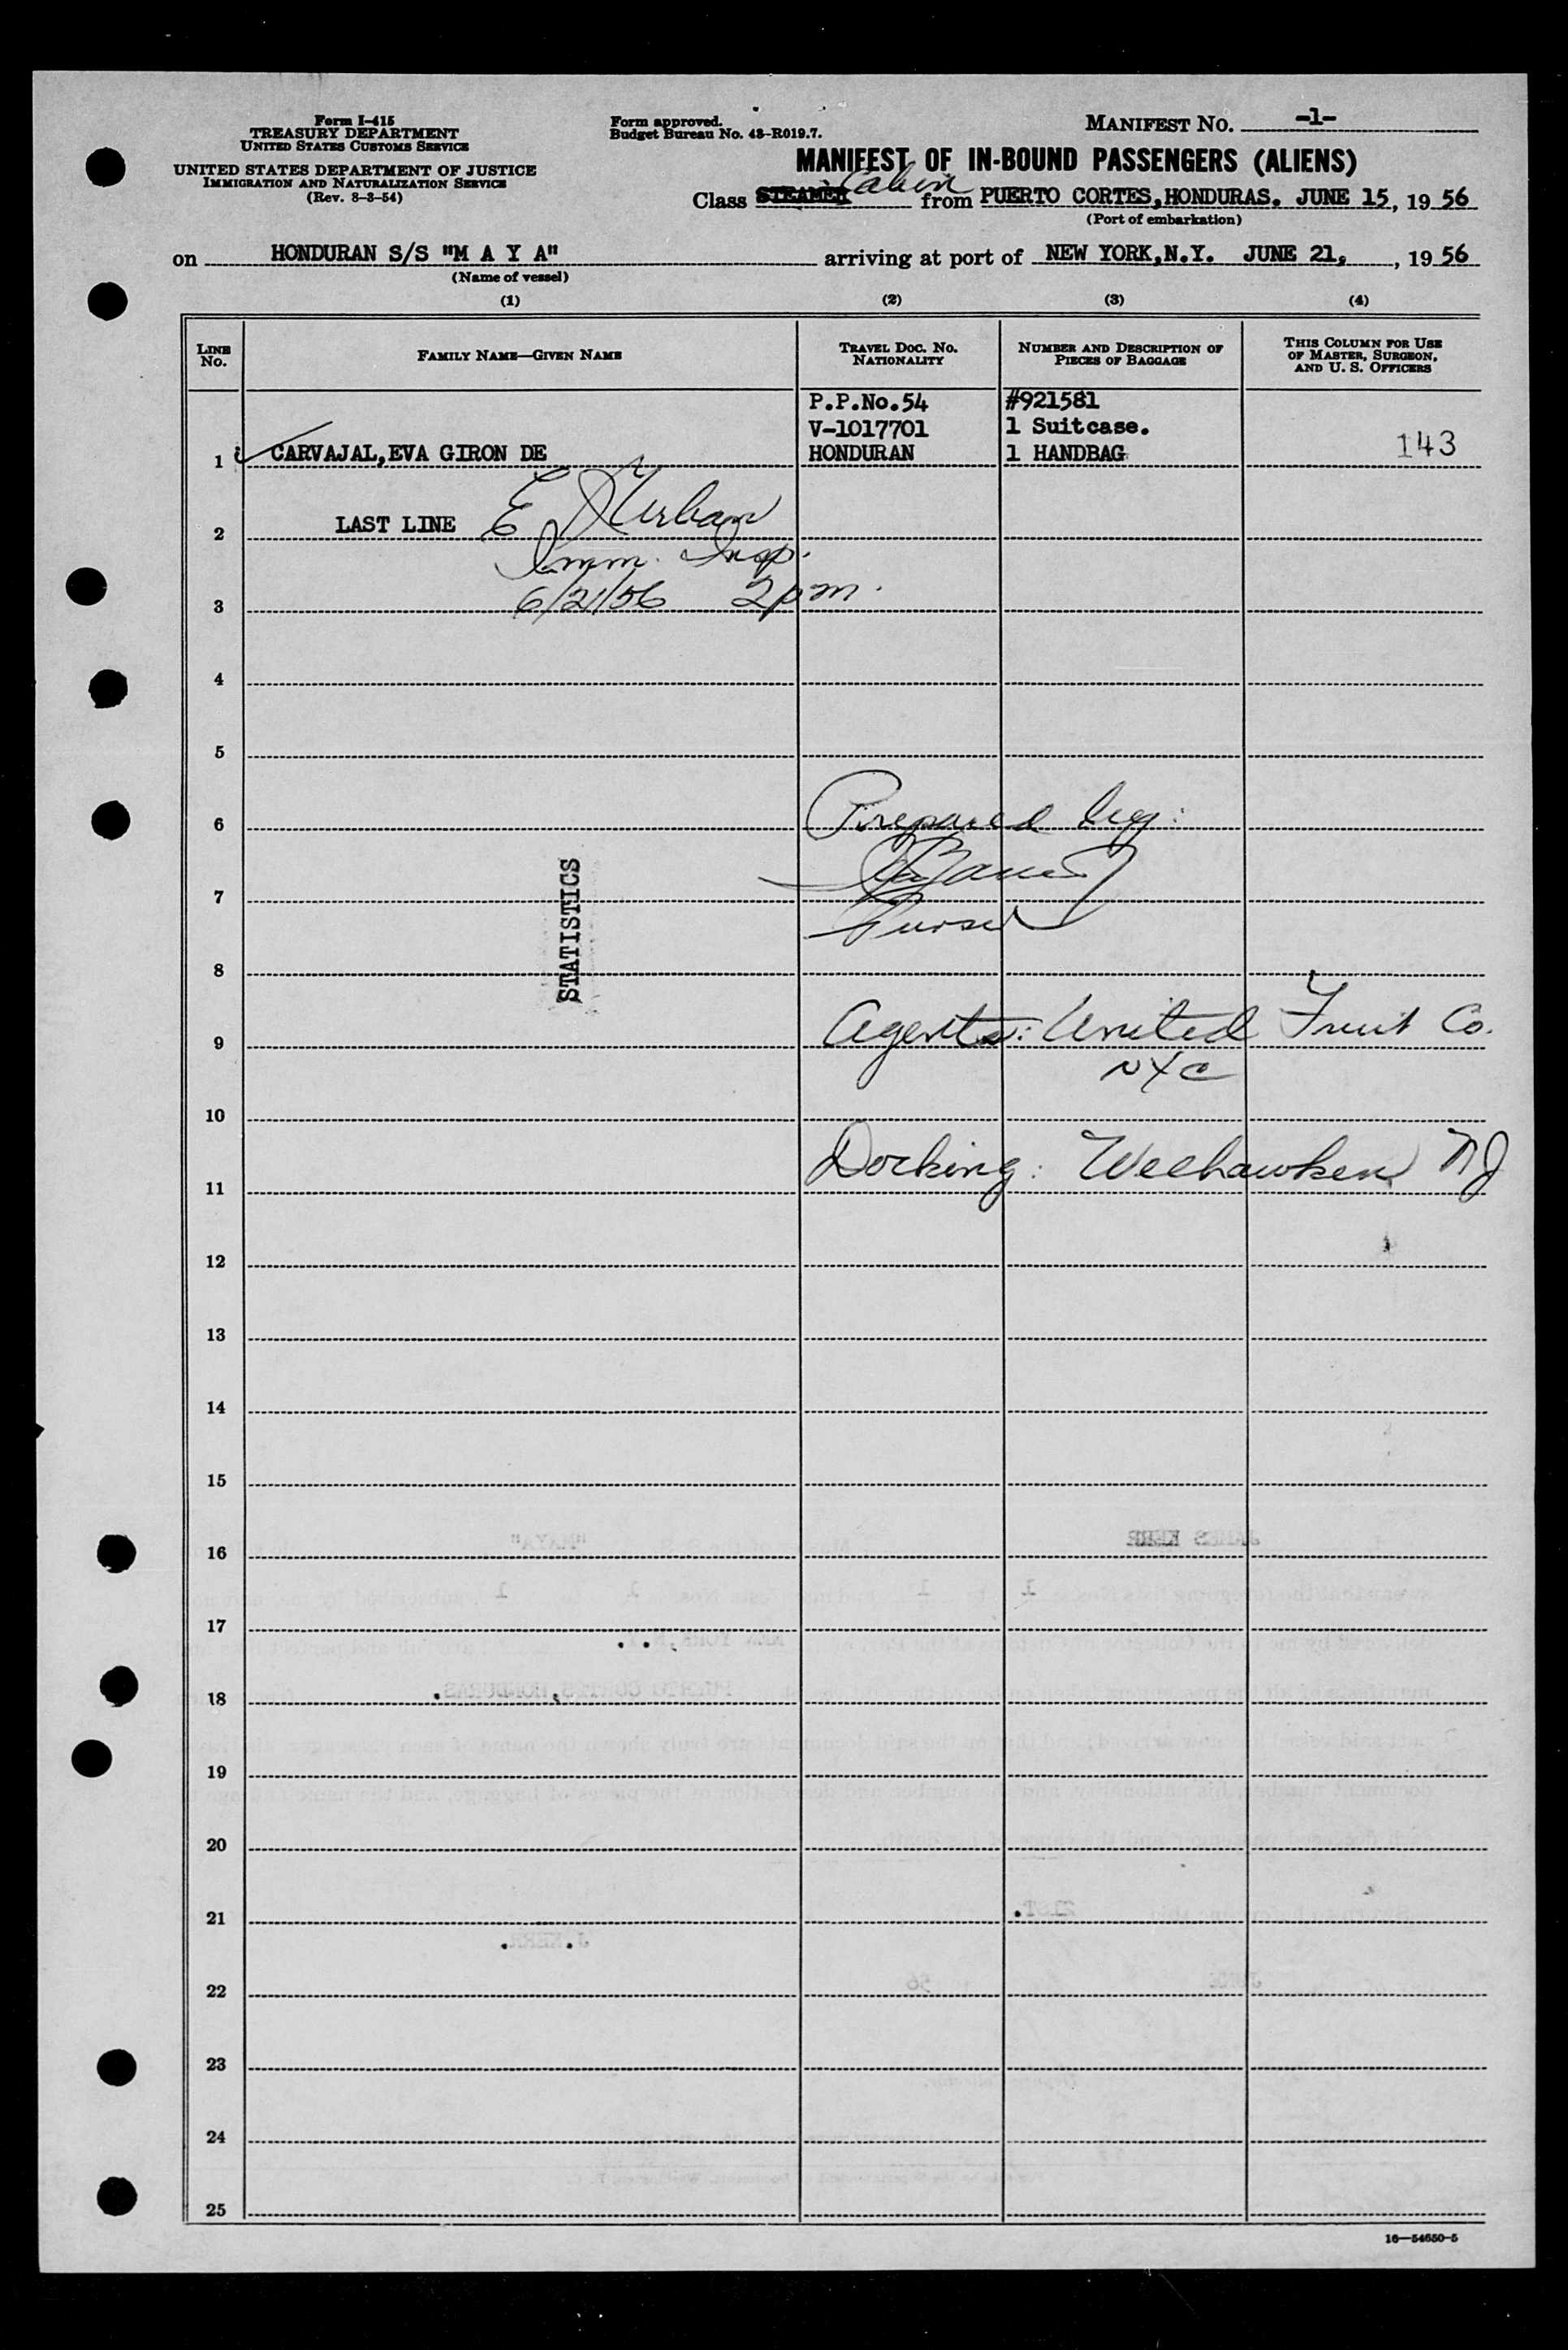 Form I-415
TREASURY DEPARTMENT
UNITED STATES CUSTOMS SERVICE
UNITED STATES DEPARTMENT OF JUSTICE
IMMIGRATION AND NATURALIZATION SERVICE
(Rev. 8-3-54)
Form approved.
Budget Bureau No. 43-R019.7.
MANIFEST NO. -1-
MANIFEST OF IN-BOUND PASSENGERS (ALIENS)
Class STEAMER Cabin from PUERTO CORTES,HONDURAS. JUNE 15, 19 56
(Port of embarkation)
on HONDURAN S/S "M A Y A" arriving at port of NEW YORK,N.Y. JUNE 21, , 19 56
(Name of vessel)
(1) (2) (3) (4)
LINE NO. FAMILY NAME—GIVEN NAME TRAVEL DOC. NO. NATIONALITY NUMBER AND DESCRIPTION OF PIECES OF BAGGAGE THIS COLUMN FOR USE OF MASTER, SURGEON, AND U. S. OFFICERS
P.P.No.54 #921581
V-1017701 1 Suitcase.
1 CARVAJAL,EVA GIRON DE HONDURAN 1 HANDBAG 143
2 LAST LINE E Urban
Imm. Insp.
3 6/21/56 2pm.
4
5
6 Prepared by:
7
Purser
STATISTICS
8
9 Agents: United Fruit Co.
NYC
10
11 Docking: Weehawken NJ
12
13
14
15
16
17
18
19
20
21
22
23
24
25
16—54650-5